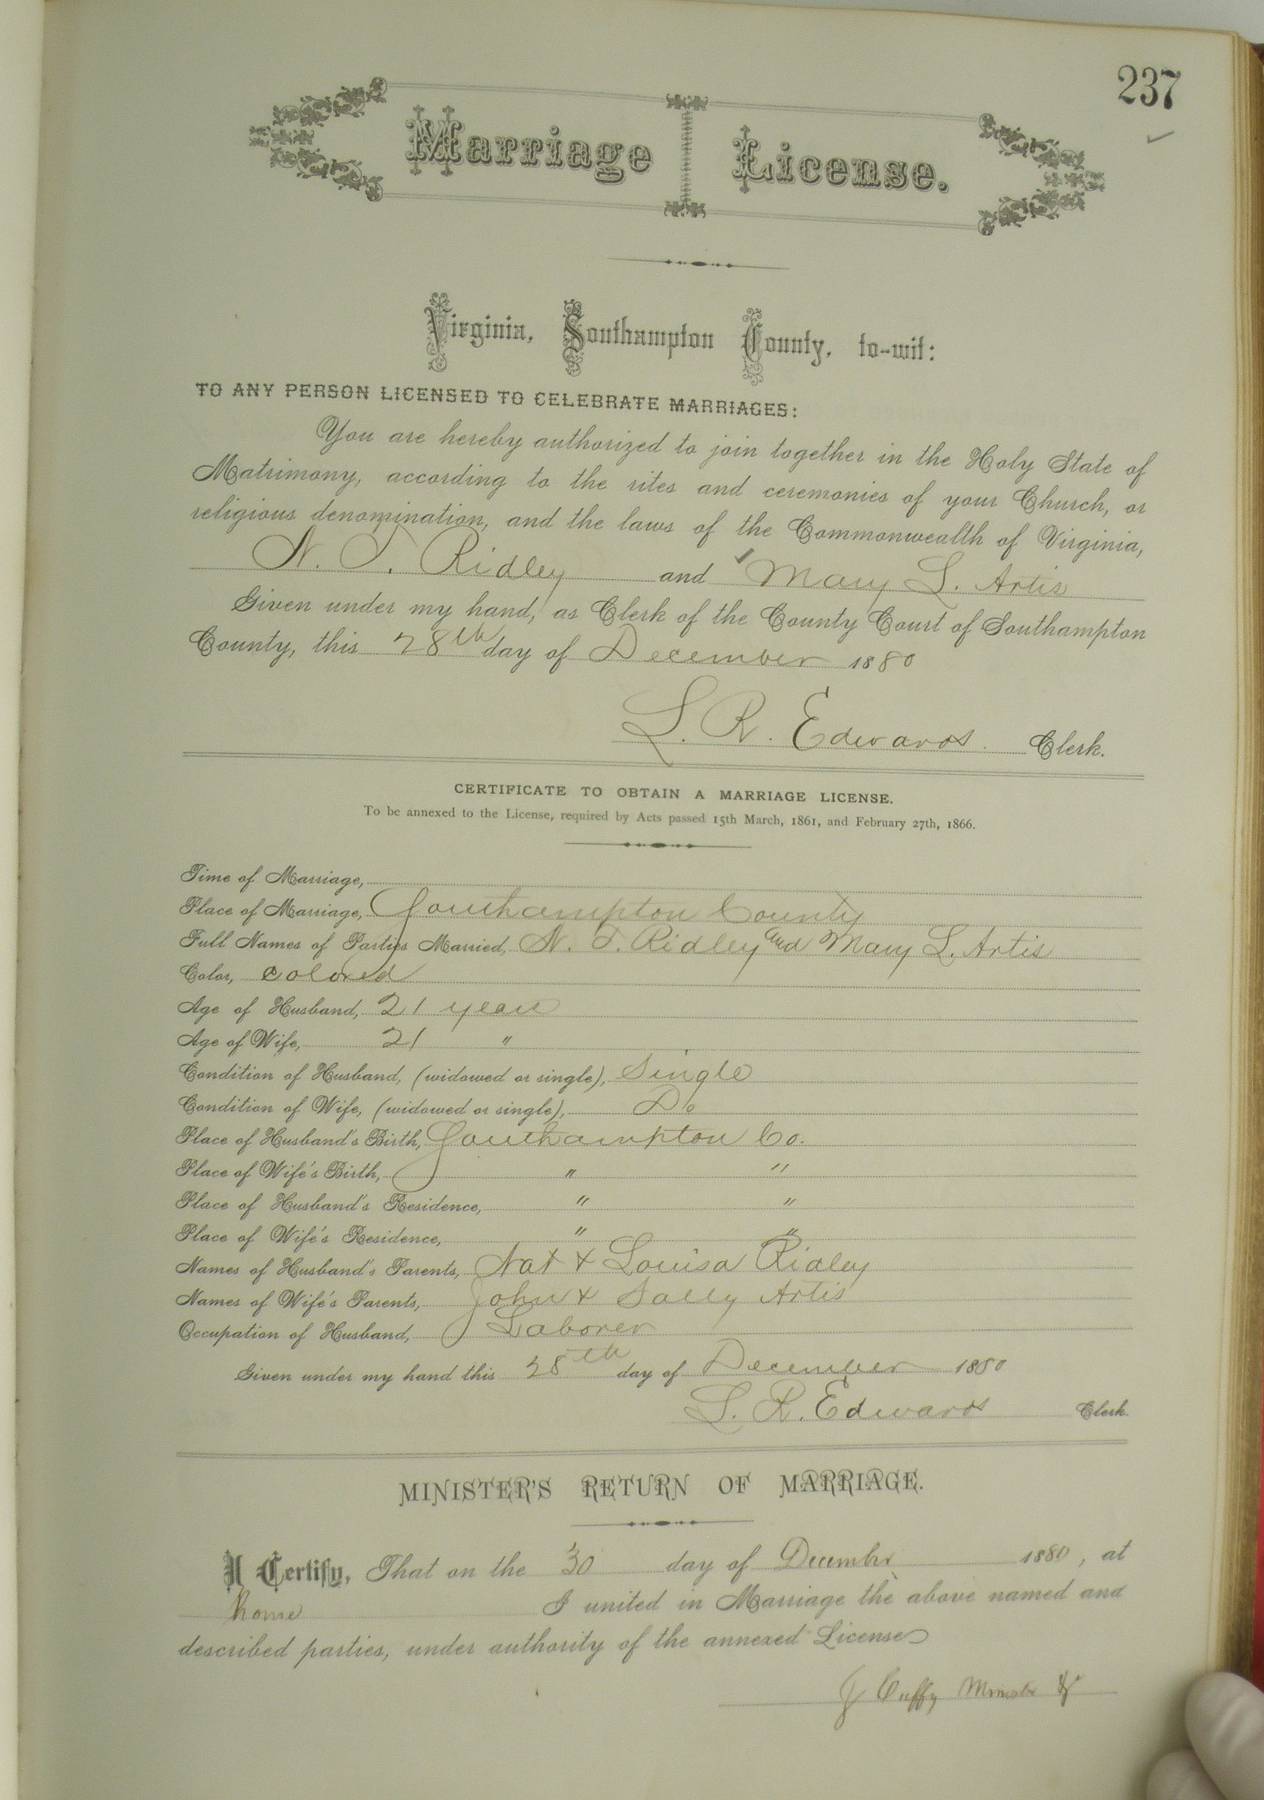 237
Marriage License.
Virginia, Southampton County, to-wit:
TO ANY PERSON LICENSED TO CELEBRATE MARRIAGES:
You are hereby authorized to join together in the Holy State of
Matrimony, according to the rites and ceremonies of your Church, or
religious denomination, and the laws of the Commonwealth of Virginia,
N. T. Ridley and Mary L. Artis
Given under my hand, as Clerk of the County Court of Southampton
County, this 28th day of December 1880
L. R. Edwards. Clerk.
CERTIFICATE TO OBTAIN A MARRIAGE LICENSE.
To be annexed to the License, required by Acts passed 15th March, 1861, and February 27th, 1866.
Time of Marriage,
Place of Marriage, Southampton County
Full Names of Parties Married, N. T. Ridley and Mary L. Artis
Color, Colored
Age of Husband, 21 years
Age of Wife, 21 "
Condition of Husband, (widowed or single), Single
Condition of Wife, (widowed or single), Do
Place of Husband's Birth, Southampton Co.
Place of Wife's Birth, " "
Place of Husband's Residence, " "
Place of Wife's Residence, " "
Names of Husband's Parents, Nat & Louisa Ridley
Names of Wife's Parents, John & Sally Artis
Occupation of Husband, Laborer
Given under my hand this 28th day of December 1880
L. R. Edwards Clerk.
MINISTER'S RETURN OF MARRIAGE.
I Certify, That on the 30 day of December 1880, at
home I united in Marriage the above named and
described parties, under authority of the annexed License
J Cuffy